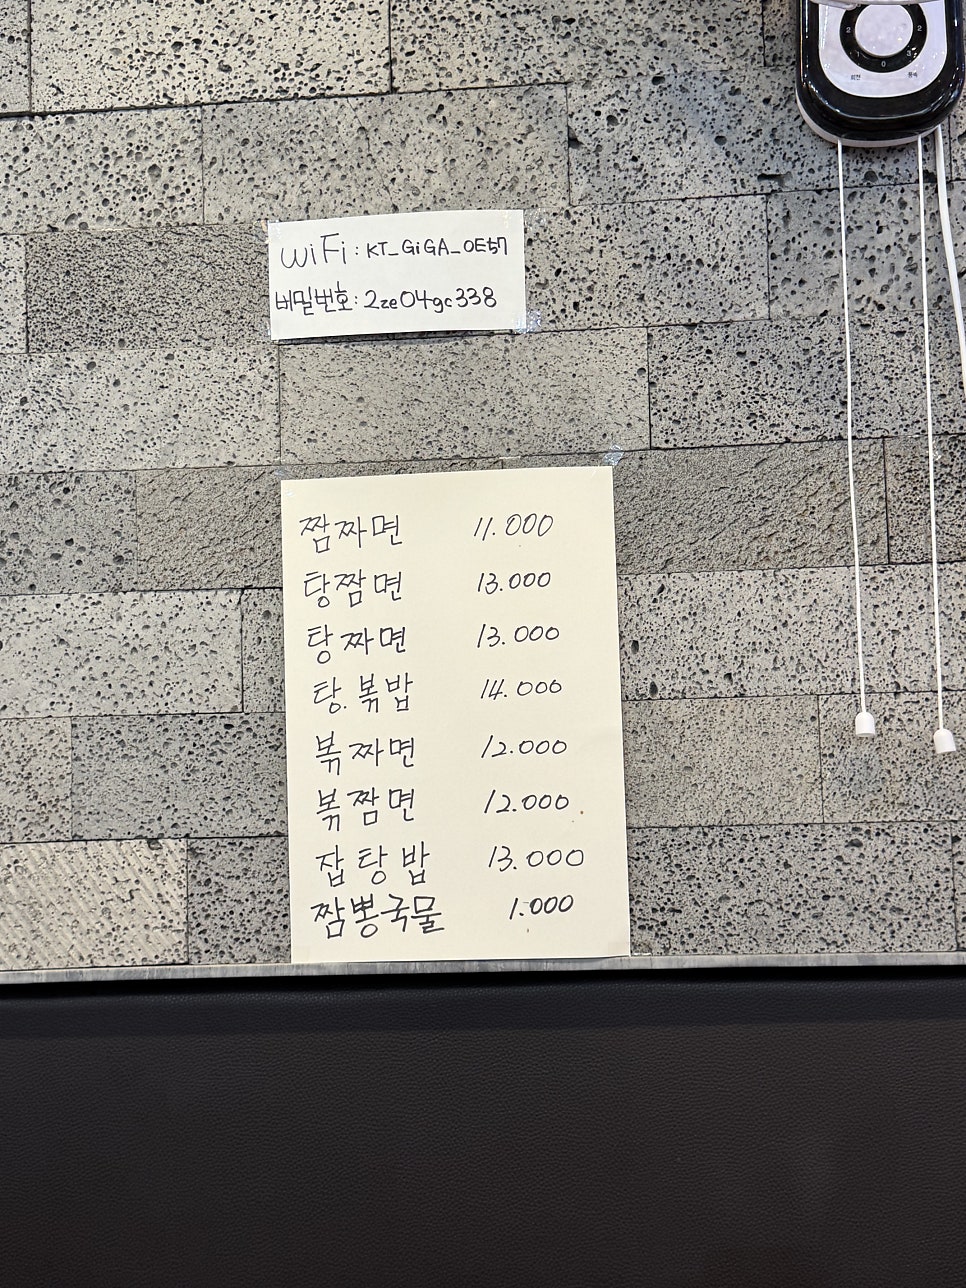 2 2
1 3
0
회전 풍속
WiFi : KT_GiGA_0E57
비밀번호 : 2ze04gc338
짬짜면 11.000
탕짬면 13.000
탕짜면 13.000
탕.볶밥 14.000
볶짜면 12.000
볶짬면 12.000
잡탕밥 13.000
짬뽕국물 1.000